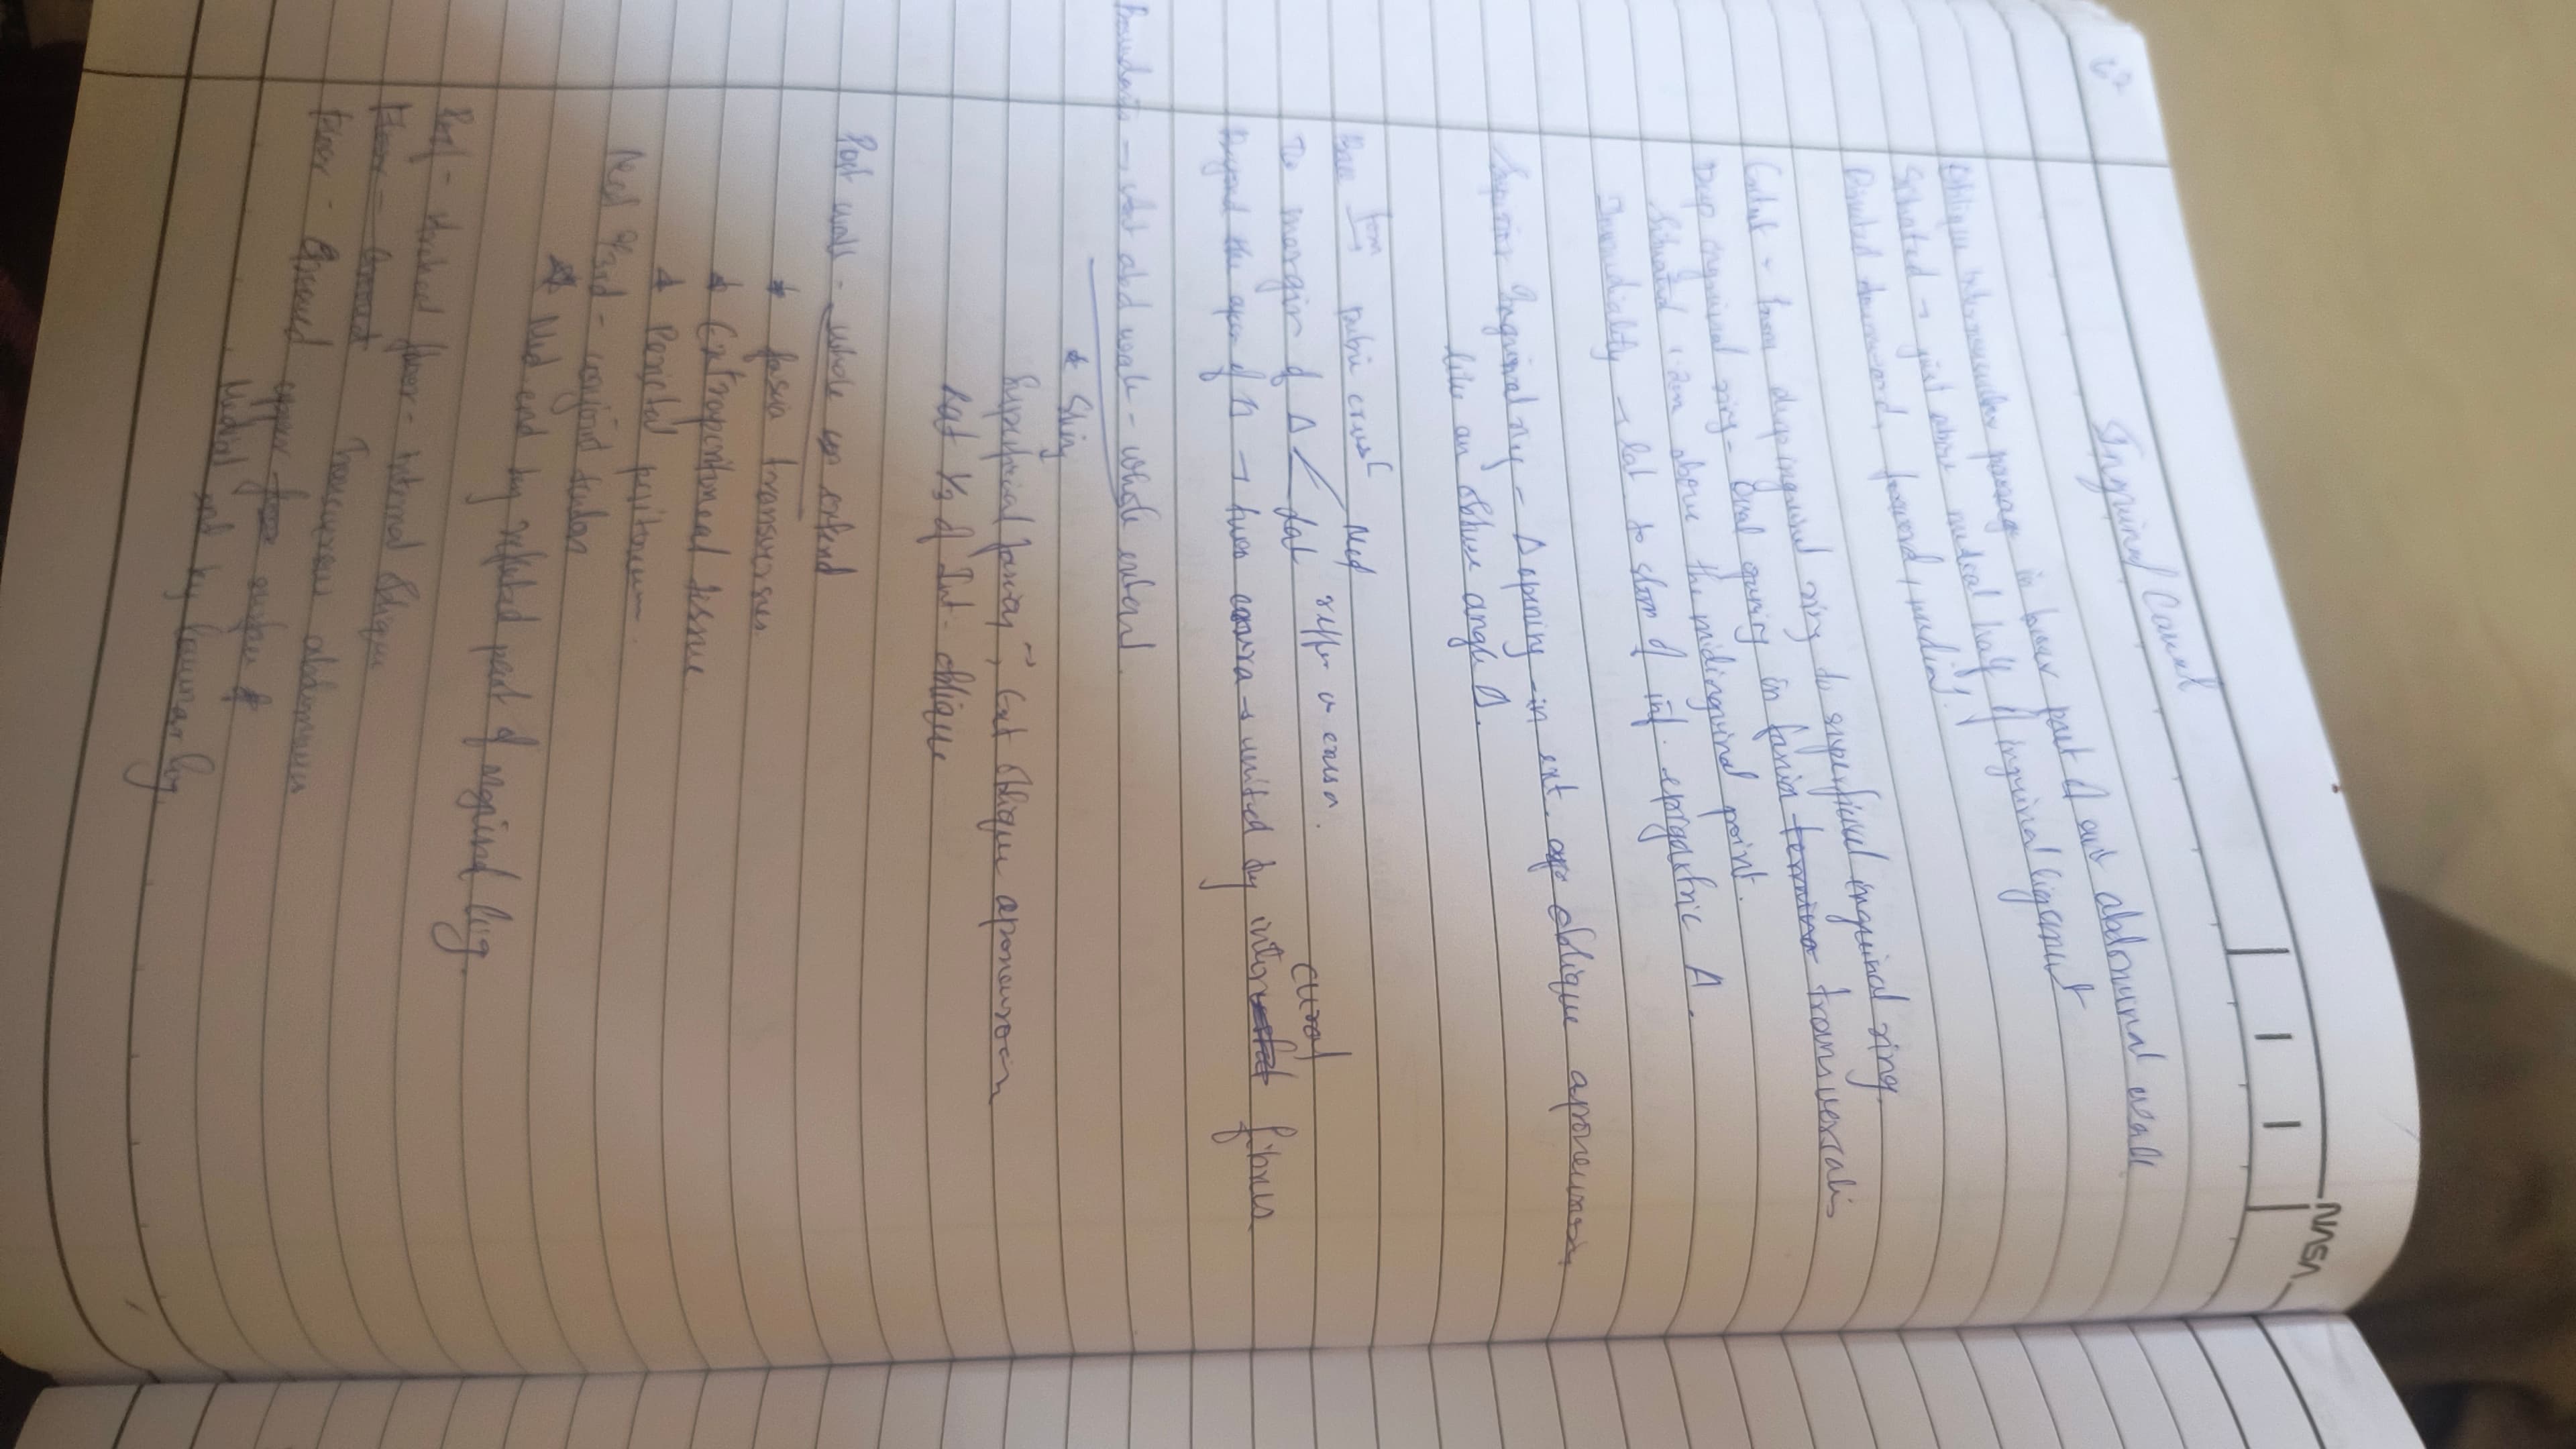 Inguinal Canal
Oblique intermuscular passage in lower part of ant abdominal wall
Situated → just above medical half of inguinal ligament
Directed downward, forward, medial
Extent → from deep inguinal ring to superficial inguinal ring
Deep inguinal ring - Oval opening in fascia transversalis
Situated 1.2cm above the midinguinal point.
Immediatly → lat to stem of inf. epigastric A.
Inguinal ring - Δ opening in ext. oblique aponeurosis
like an obtuse angle Δ.
Base form pubic crest
Med
To margin of Δ
Lat
crura.
Beyond the apex of Δ → two crura → united by inter crural fibres
Boundaries → ant abd wall - whole extent.
* Skin
Superficial fascia, Ext oblique aponeurosis
Lat 1/3 of Int. oblique
Post wall - whole extend
* fascia transverses
* Extraperitoneal tissue
* Parietal peritoneum.
Med 2/3rd - conjoint tendon
* Med end by reflected part of inguinal lig.
Roof - Arched fiber - internal oblique
Transversus abdominis
Floor - Grooved upper surface
Medial end by lacunar lig.
NASA